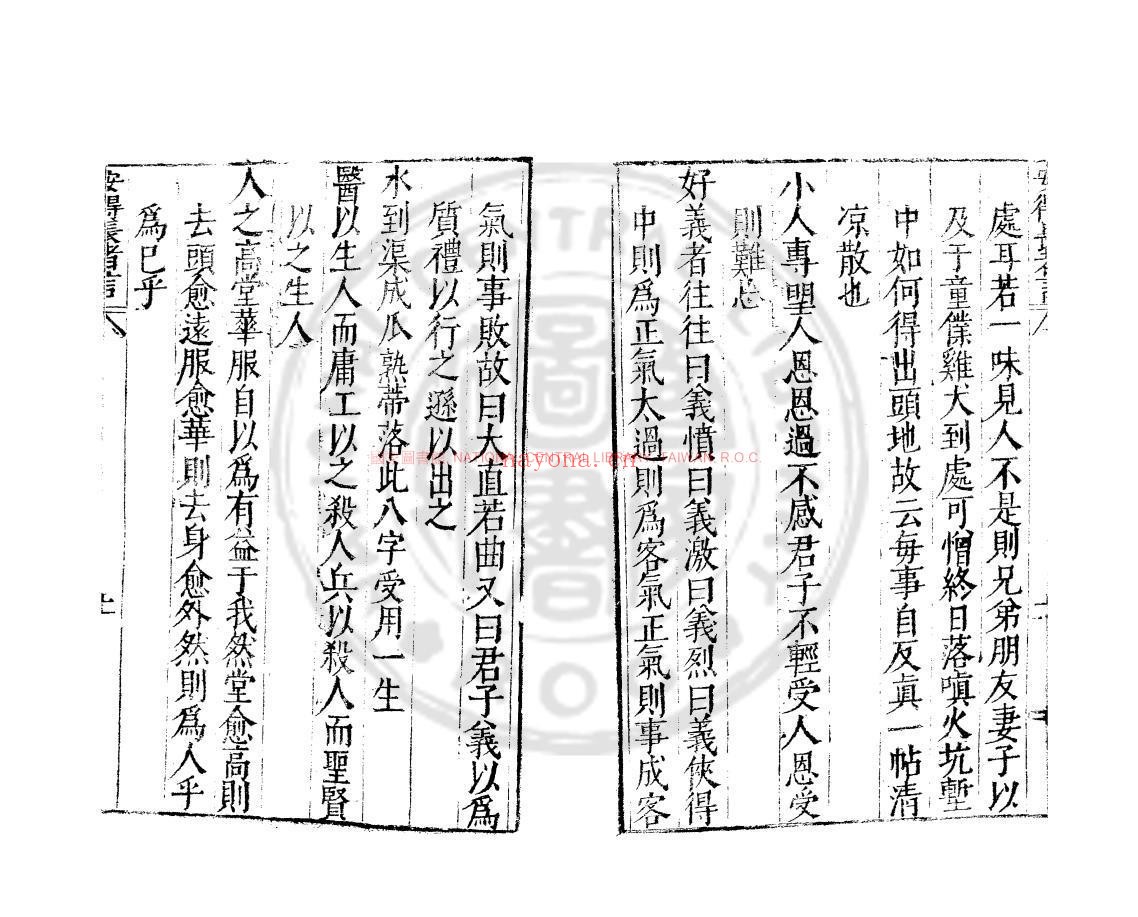 處耳若一味見人不是則兄弟朋友妻子以
及于童僕雞犬到處可憎終日落嗔火坑塹
中如何得出頭地故云每事自反眞一帖清
凉散也
小人專望人恩恩過不感君子不輕受人恩受
則難忘
好義者往往曰義憤曰義激曰義烈曰義俠得
中則爲正氣太過則爲客氣正氣則事成客
氣則事敗故曰大直若曲又曰君子義以爲
質禮以行之遜以出之
水到渠成瓜熟蒂落此八字受用一生
醫以生人而庸工以之殺人兵以殺人而聖賢
以之生人
人之高堂華服自以爲有益于我然堂愈高則
去頭愈遠服愈華則去身愈外然則爲人乎
爲巳乎
安得長者言
國家圖書館 NATIONAL CENTRAL LIBRARY, TAIWAN R.O.C.
nayona.cn